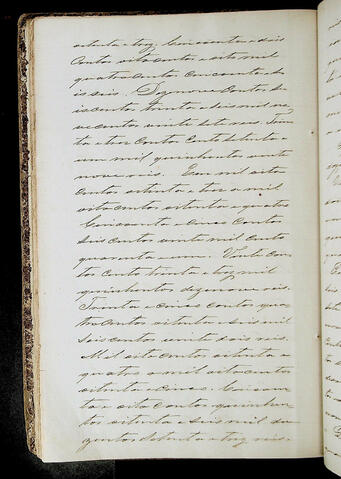 oitenta e tres. Cincoenta e dois
Contos oitocentos e oito mil
quatro centos cincoenta e
is reis. Dezenove Contos de
iscentos trinta e seis mil no
ve centos vinte sete reis. Trin
ta e tres Contos Cento setenta e
um mil quinhentos vinte
nove reis. Em mil oito
centos oitenta e tres a mil
oito centos oitenta e quatro
Cincoenta e cinco Contos
seis centos vinte mil cento
quarenta e um. Vinte con
tos cento trinta e tres mil
quinhentos dezenove reis.
Trinta e cinco Contos qua
tro centos oitenta e seis mil
seis centos vinte dois reis.
Mil oito centos oitenta e
quatro a mil oito centos
oitenta e cinco. Cincoen
ta e oito Contos quinhen
tos oitenta e seis mil du
zentos setenta e tres reis.